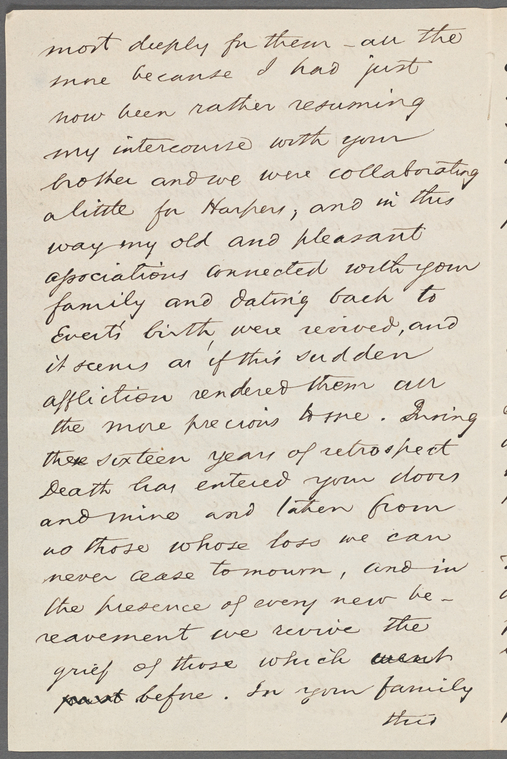 most deeply for them – all the
more because I had just
now been rather resuming
my intercourse with your
brother and we were collaborating
a little for Harpers; and in this
way my old and pleasant
associations connected with your
family and dating back to
Evert's birth, were revived, and
it seems as if this sudden
affliction rendered them all
the more precious to me. During
these sixteen years of retrospect
Death has entered your doors
and mine and taken from
us those whose loss we can
never cease to mourn, and in
the presence of every new be-
reavement we revive the
grief of those which went
before. In your family
this